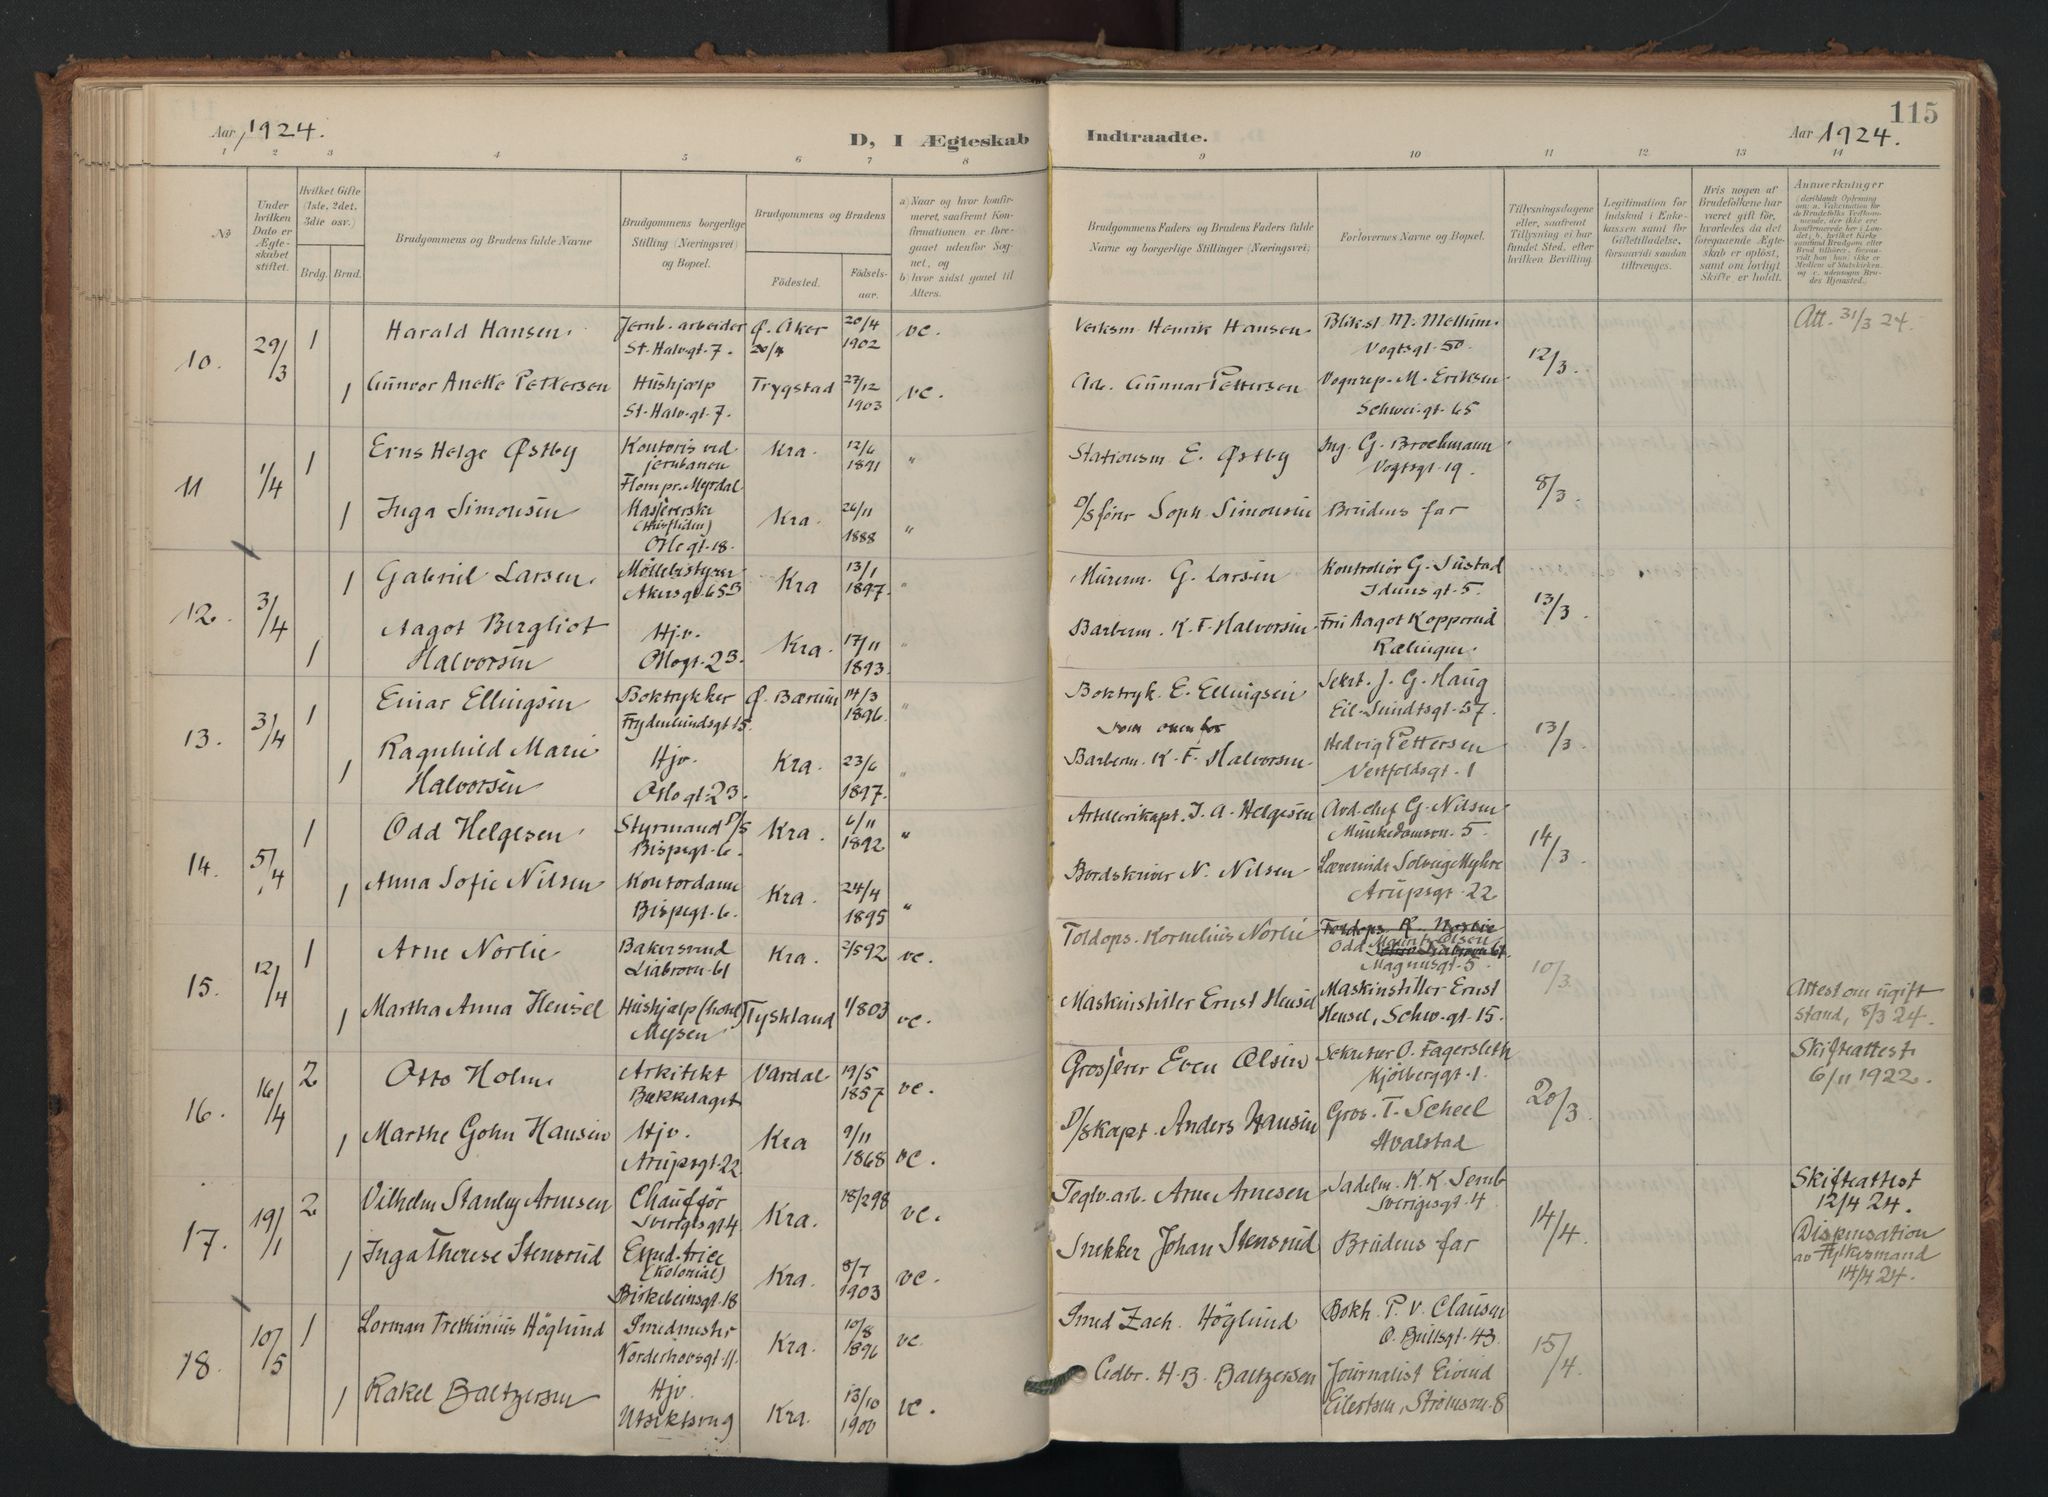 115
Aar 1924.
D, I Ægteskab Indtraadte.
Aar 1924.
1 2 3 4 5 6 7 8 9 10 11 12 13 14
No
Under hvilken Dato er Ægteskabet stiftet.
Hvilket Gifte (1ste, 2det, 3die osv.)
Brdg. Brud.
Brudgommens og Brudens fulde Navne
Brudgommens borgerlige Stilling (Næringsvei) og Bopæl.
Brudgommens og Brudens
Fødested.
Fødselsaar.
a) Naar og hvor konfirmeret, saafremt Konfirmationen er foregaaet udenfor Sognet, og
b) hvor sidst gaaet til Alters.
Brudgommens Faders og Brudens Faders fulde Navne og borgerlige Stillinger (Næringsvei).
Forlovernes Navne og Bopæl.
Tillysningsdagene eller, saafremt Tillysning ei har fundet Sted, efter hvilken Bevilling.
Legitimation for Indskud i Enkekassen samt for Giftetilladelse, forsaavidt saadan tiltrænges.
Hvis nogen af Brudefolkene har været gift før, hvorledes da det foregaaende Ægteskab er opløst, samt om lovligt Skifte er holdt.
Anmerkninger
10. 29/3 1 Harald Hansen. Jernb. arbeider St. Halv. gt. 7. Ø. Aker 20/4 1902 vc. Verksm. Henrik Hansen. Bliksl. M. Mellum. Vogtsgt. 50. 12/3. Att. 31/3 24.
1 Gunvor Anette Pettersen Hushjælp St. Halv. gt. 7. Trygstad 27/12 1903 vc. Arb. Gunnar Pettersen Vognrep. M. Eriksen Schwei. gt. 65
11 1/4 1 Erns Helge Østby Kontoris ved jernbanen Flom pr. Myrdal Kra. 12/6 1891 " Stationsm. E. Østby Ing. G. Brochmann Vogtsgt. 19. 8/3.
1 Inga Simonsen Massererske Oslogt. 18. Kra. 26/11 1888 " D/S fører Soph. Simonsen Brudens far
12. 3/4 1 Gabriel Larsen. Møllebestyrer Akersgt. 65B Kra 13/1 1897. " Murerm. G. Larsen Kontrollør G. Sustad Iduns gt. 5. 13/3.
1 Aagot Bergliot Halvorsen Hjv. Oslogt. 23. Kra. 17/11 1893 " Barberm. K. F. Halvorsen. Frk. Aagot Kopperud Rælingen.
13. 3/4 1 Einar Ellingsen Boktrykker Frydenlundsgt 15. Ø. Bærum 14/3 1896. " Boktryk. E. Ellingsen Sekt. J. G. Haug Eil. Sundtsgt. 57. 13/3
1 Ragnhild Marie Halvorsen Hjv. Oslogt. 23. Kra. 23/6 1897. " som ovenfor Barberm. K. F. Halvorsen. Hedvig Pettersen Vestfoldsgt. 1
14. 5/4 1 Odd Helgesen Styrmand D/S Bispegt. 6. Kra. 6/11 1892 " Artillerikapt. J. A. Helgesen Avd.chef G. Nilsen Munkedamsv. 5. 14/3.
1 Anna Sofie Nilsen Kontordame Bispegt. 6. Kra. 24/4 1895 " Bordskriver N. Nilsen Lærerinde Solveig Myhre Arupsgt. 22
15. 12/4 1 Arne Norlie Bakersvend Liabrovn. 61 Kra. 2/5 92 vc. Toldops. Kornelius Norlie Toldops. K. Norlie Odd Maurits Olsen Magnusgt. 5. 10/3.
1 Martha Anna Hensel Hushjælp (hotel) Mysen Tyskland 1/8 03 vc. Maskinstiller Ernst Hensel Maskinstiller Ernst Hensel, Schw. gt. 15. Attest om ugift stand, 8/3 24.
16. 16/4 2 Otto Holm Arkitekt Bækkelaget Vardal 19/5 1857 vc. Grosserer Even Olsen Sekretær O. Fagersleth Kjølberggt. 1. 20/3 Skifteattest 6/11 1922.
1 Marthe Gohn Hansen Hjv. Arupsgt. 22 Kra 9/11 1868 vc. D/S kapt. Anders Hansen Gros. T. Scheel Hvalstad
17. 19/1 2 Vilhelm Stanley Arnesen Chauffør Sverigesgt 4 Kra. 18/2 98 vc. Teglv. arb. Arne Arnesen Sadelm. K. K. Semb Sverigesgt. 4 14/4. Skifteattest 12/4 24.
1 Inga Therese Stensrud Exped.trice (Kolonial) Birkebeinsgt. 18 Kra. 8/7 1903 vc. Snekker Johan Stensrud Brudens far Dispensation av Fylkesmand 14/4 24.
18. 10/5 1 Lorman Høglund Smedmester Norderhovsgt. 11. Kra. 10/8 1896 vc. Smed Zach. Höglund Bokh. P. V. Clausen O. Bullsgt. 43. 15/4.
1 Rakel Baltzersen Hjv. Utsiktsvn 9 Kra. 13/10 1900 vc. Gdbr. H. B. Baltzersen Journalist Eivind Eilertsen, Strømsvn. 8